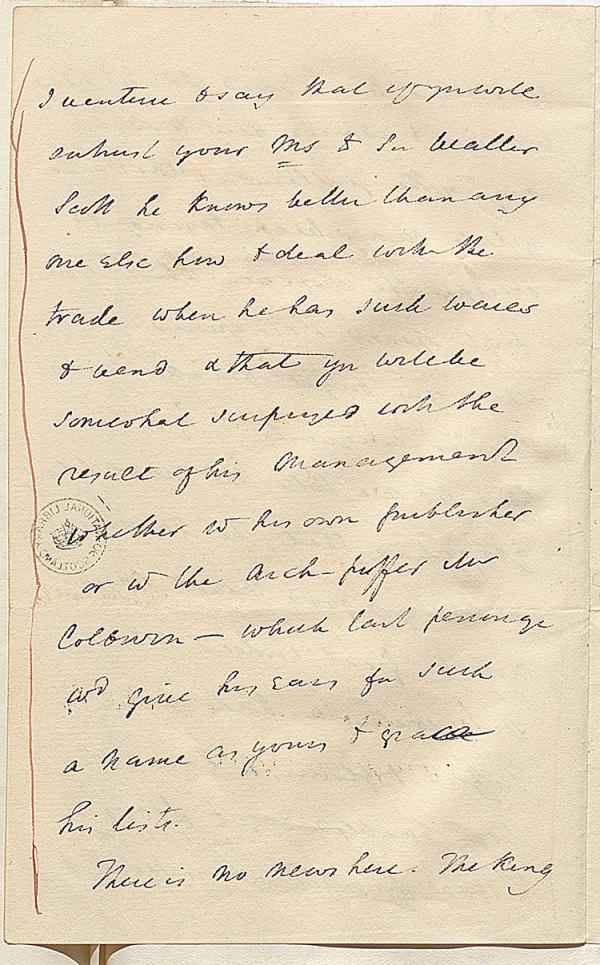 I venture to say that if you will
submit your Ms to Sir Walter
Scott he knows better than any
one else how to deal with the
trade when he has such wares
to vend & that you will be
somewhat surprized with the
result of his management
whether wh his own publisher
or wh the Arch-puffer Mr
Colburn — which last personage
wd give his ears for such
a name as yours to grace
his lists.
There is no news here. The King
NATIONAL LIBRARY OF SCOTLAND